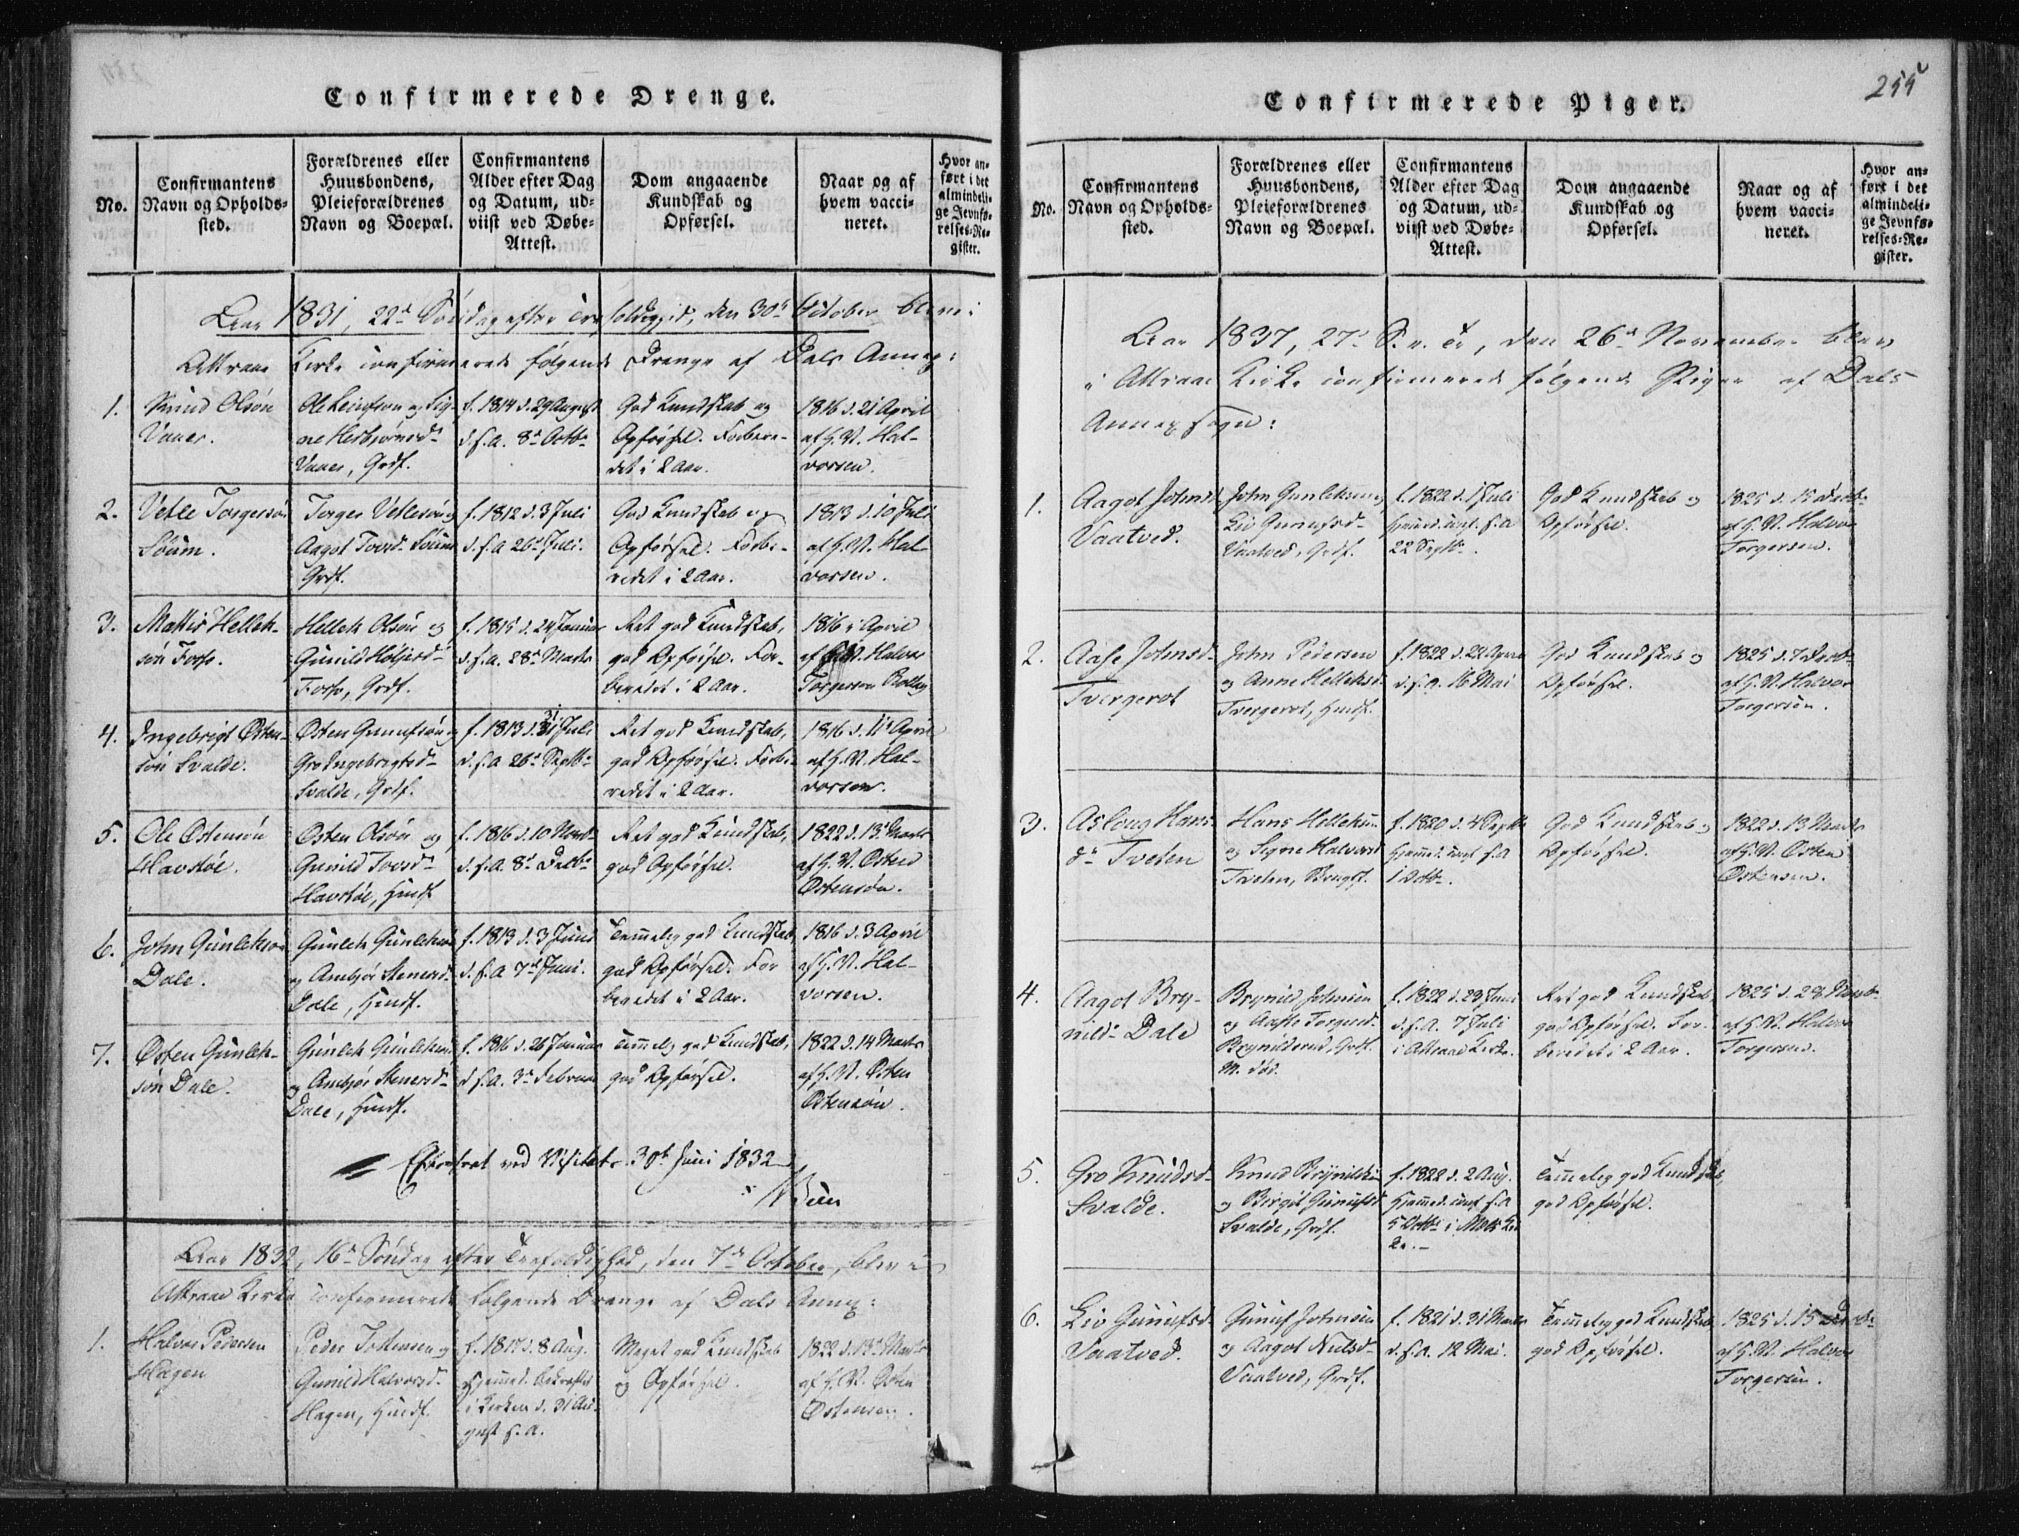 Confirmerede Drenge.
No.
Confirmantens
Navn og Opholds-
sted.
Forældrenes eller
Huusbondens,
Pleieforældrenes
Navn og Boepæl.
Confirmantens
Alder efter Dag
og Datum, ud-
viist ved Døbe-
Attest.
Dom angaaende
Kundskab og
Opførsel.
Naar og af
hvem vacci-
neret.
Hvor an-
ført i det
almindeli-
ge Jevnfø-
relses-Re-
gister.
Aar 1831, 22d Søndag efter Trefoldighed, den 30te October blev i
Attraae Kirke confirmerede følgende Drenge af Dals Annex:
1.
Knud Olsøn
Vaaer.
Ole Leufsøn og Sig-
ne Herbjørnsd-
Vaaer, Grdf.
f. 1814 d. 29 August
d. s. A. 8d Octbr
God Kundskab og
Opførsel. Forbere-
det i 2 Aar.
1816 d. 21 April
af G. N. Hal-
vorsen.
2.
Vetle Torgersøn
Søum.
Torger Vetlesøn og
Aagot Tovsd. Søum
Grdf.
f. 1812 d. 3 Juli
d. s. A 26d Juli.
God Kundskab og
Opførsel. Forbe-
redet i 2 Aar.
1813 d. 10 Juli
af G. N. Hal-
vorsen.
3.
Mattis Hellek-
søn Forso.
Hellek Olsøn og
Gunild Høljesd-
Forso, Grdf.
f. 1815 d. 24 Januar
d. s. A. 28d Marts
Ret god Kundskab,
god Opførsel. For-
beredet i 2 Aar.
1816 i April
af Halvor
Torgersen
4.
Ingebrigt Østen-
søn Svalde.
Østen Gunufsøn og
Gro Ingebrigtsd-
Svalde, Grdf.
f. 1813 d. 31 Juli
d. s. A 26d Septbr
Ret god Kundskab,
god Opførsel. Forbe-
redet i 2 Aar.
1816 d. 11d April
af G. N. Hal-
vorsen.
5.
Ole Østensøn
Havstøe.
Østen Olsøn og
Gunild Tovsd-
Havstøe, Huusf.
f. 1816 d. 10 Novbr
d. s. A. 8d Decbr
Ret god Kundskab,
god Opførsel.
1822 d. 13d Marts
af G. N. Østen
Østensøn.
6.
John Gunleksøn
Dale.
Gunlek Gunleksøn
og Ambjør Stenersd-
Dale, Huusf.
f. 1813 d. 3 Juni
d. s. A 7d Juni.
Temmelig god Kundskab,
god Opførsel. For
beredet i 2 Aar.
1816 d. 3 April
af G. N. Hal-
vorsen.
7.
Østen Gunlek-
søn Dale.
Gunlek Gunleksøn
og Ambjør Stenersd-
Dale, Huusf.
f. 1816 d. 26 Januar
d. s. A. 3d Februar
Temmelig god Kundskab,
god Opførsel.
1822 d. 14 Marts
af G. N. Østen
Østensøn.
Efterseet ved Visitats 30te Juni 1832
Aar 1832, 16d Søndag efter Trefoldighed, den 7de October, blev i
Attraae Kirke confirmerede følgende Drenge af Dals Annex:
1.
Halvor Pedersen
Hagen
Peder Jostensen og
Gunild Halvorsd-
Hagen, Huusf.
f. 1817 d. 8 Aug.
hjemmed. bekræftet
i Kirken d. 31 Au-
gust s. A.
Meget god Kundskab
og Opførsel.
1822 d. 13d Marts
af G. N. Østen
Østensen.
255
Confirmerede Piger.
No.
Confirmantens
Navn og Opholds-
sted.
Forældrenes eller
Huusbondens,
Pleieforældrenes
Navn og Boepæl.
Confirmantens
Alder efter Dag
og Datum, ud-
viist ved Døbe-
Attest.
Dom angaaende
Kundskab og
Opførsel.
Naar og af
hvem vacci-
neret.
Hvor an-
ført i det
almindeli-
ge Jevnfø-
relses-Re-
gister.
Aar 1837, 27d S. e. Tr, den 26d November blev
i Attraae Kirke confirmerede følgende Piger af Dals
Annexsogn:
1.
Aagot Johnsd-
Vaatved.
John Gunleksen og
Liv Gunufsd-
Vaatved, Grdf.
f. 1822 d. 1 Juli
hjemmed. conf. s. A
22 Septbr.
God Kundskab og
Opførsel.
1825 d. 15 Decbr
af G. N. Halvor
Torgersen.
2.
Aase Johnsd-
Tvergerot
John Pedersen
og Anne Helleksd-
Tvergerot, Huusf.
f. 1822 d. 22 April
d. s. A. 16 Mai
God Kundskab og
Opførsel.
1825 d. 7 Decbr
af G. N. Halvor
Torgersøn.
3.
Aslaug Hans-
dr Tveten
Hans Helleksøn
og Signe Halvorsd
Tveten, Brugsf.
f. 1820 d. 4 Septbr
hjemmed. conf. s. A
1 Octbr.
God Kundskab og
Opførsel.
1822 d. 13 Marts
af G. N. Østen
Østensen.
4.
Aagot Bry-
nilds- Dale
Brynild Johnsøn
og Aaste Torgersd-
Brynildsrud, Grdf.
M. død.
f. 1822 d. 23 Juni
d. s. A. 7 Juli
i Attraae Kirke.
Ret god Kundskab,
god Opførsel. For-
beredet i 2 Aar.
1825 d. 29 Novbr
af G. N. Halvor
Torgersen.
5.
Gro Knudsd-
Svalde.
Knud Brynildsøn
og Birgit Gunufsd-
Svalde, Grdf.
f. 1822 d. 2 Aug.
hjemmed. conf. s. A
5 Octbr i Kir
ke.
Temmelig god Kundskab,
god Opførsel.
6.
Liv Gunufsd-
Vaatved.
Gunuf Johnsøn
og Aagot Nielsd-
Vaatved, Grdf.
f. 1821 d. 31 Marts
d. s. A. 12 Mai.
Temmelig god Kundskab
god Opførsel.
1825 d. 15 Decbr
af G. N. Halvor
Torgersøn.